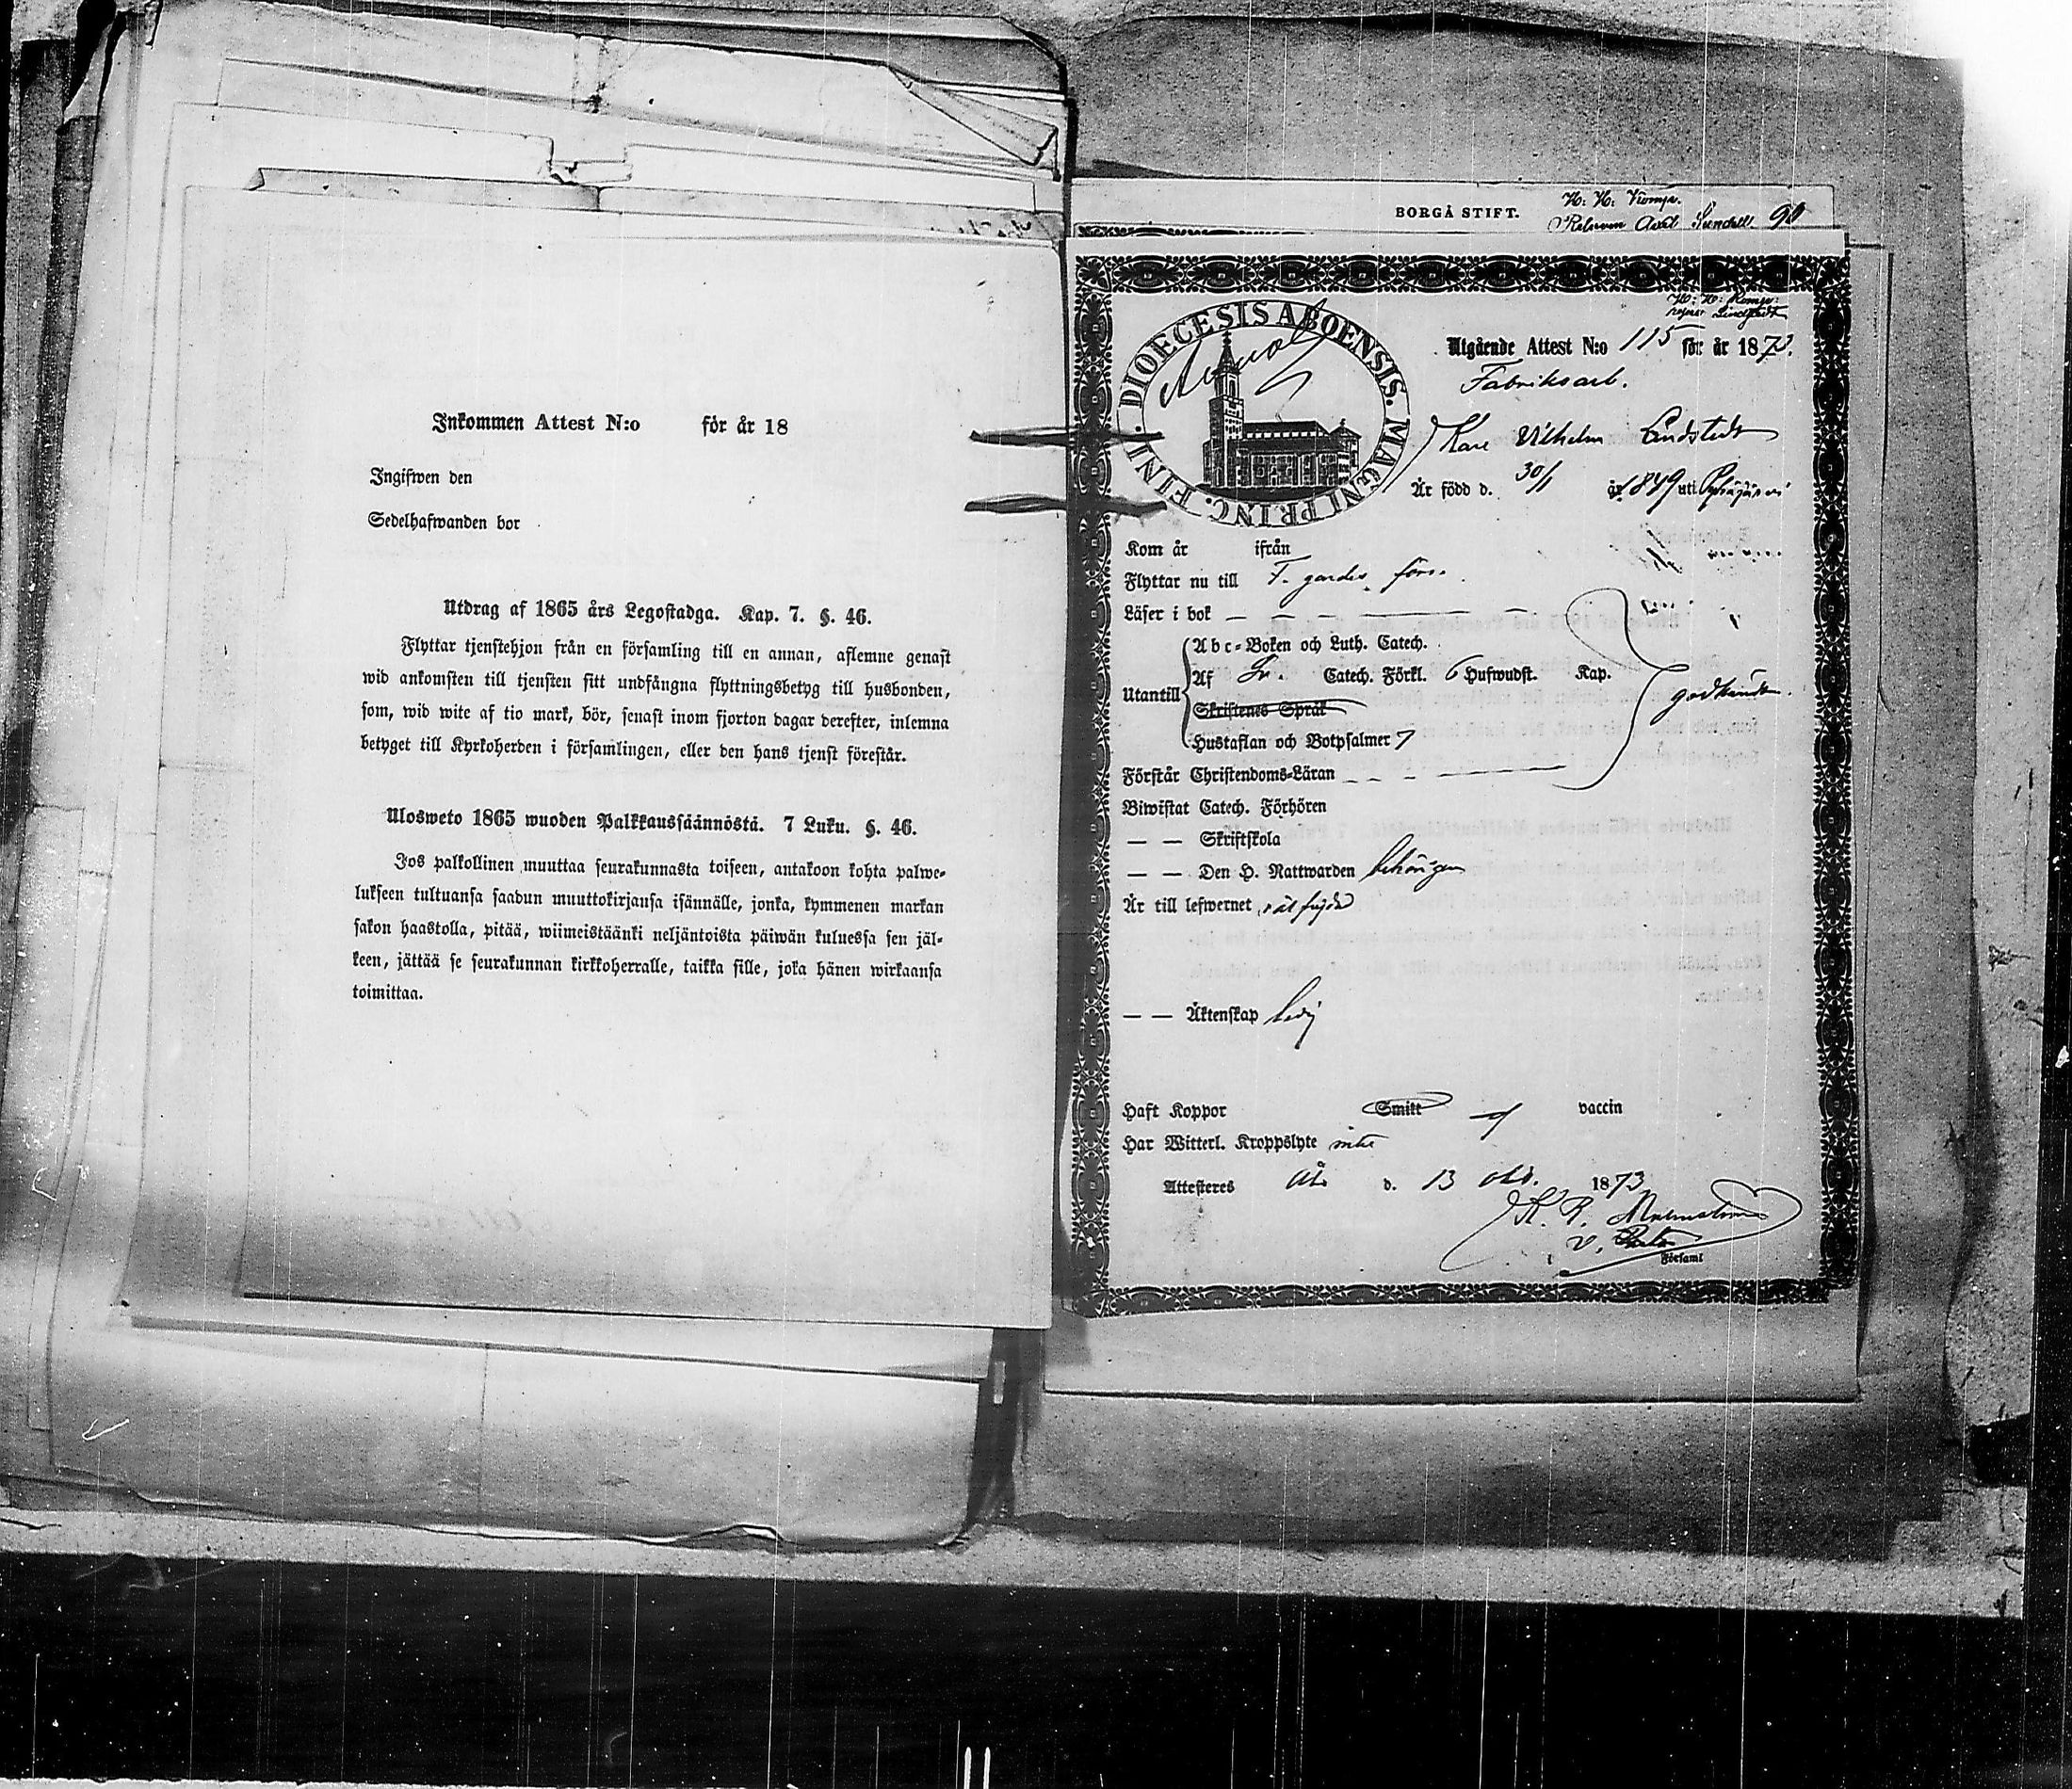 Inkommen Attest N:o för år 18
Ingifwen den
Sedelhafwanden bor
Utdrag af 1865 års Legostadga. Kap. 7. §. 46.
Flyttar tjenstehjon från en församling till en annan, aflemne genast
wid ankomsten till tjensten sitt undfångna flyttningsbetyg till husbonden,
som, wid wite af tio mark, bör, senast inom fjorton dagar derefter, inlemna
betyget till Kyrkoherden i församlingen, eller den hans tjenst förestår.
Ulosweto 1865 wuoden Palkkaussäännöstä. 7 Luku. §. 46.
Jos palkollinen muuttaa seurakunnasta toiseen, antakoon kohta palwe-
lukseen tultuansa saadun muuttokirjansa isännälle, jonka, kymmenen markan
sakon haastolla, pitää, wiimeistäänki neljäntoista päiwän kuluessa sen jäl-
keen, jättää se seurakunnan kirkkoherralle, taikka sille, joka hänen wirkaansa
toimittaa.
BORGÅ STIFT.
Axel Sundell 90
DIOECESIS ABOENSIS. MAGNI PRINC. FINL.
Utgående Attest N:o 115 för år 1873.
Fabriksarb.
Karl Vilhelm Lindstedt
Är född d. 30/1 år 1849 uti Pyhäjärvi
Kom år ifrån
Flyttar nu till F. gardes förs.
Läser i bok — — —
Utantill
Abc-Boken och Luth. Catech.
Af Sv. Catech. Förkl. 6 Hufwudst. Kap.
godkändt.
Skriftenes Språk
Hustaflan och Botpsalmer 7
Förstår Christendoms-Läran
Biwistat Catech. Förhören
— — Skriftskola
— — Den H. Nattwarden behörigen
Är till lefwernet välfrejdad
— — Äktenskap ledig
Haft Koppor Smitt vaccin
Har Witterl. Kroppslyte inte
Attesteres Åbo d. 13 okt. 1873
K. R. Malmström
v.
i Församl